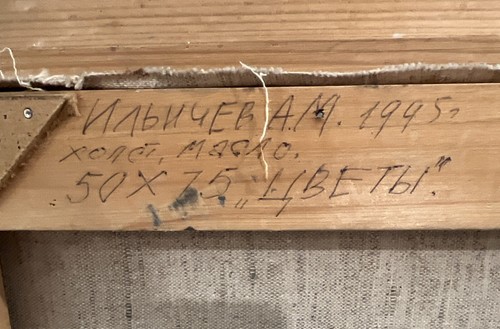 ИЛЬИЧЕВ А.М. 1995г
холст, масло.
50 X 75 „ЦВЕТЫ".